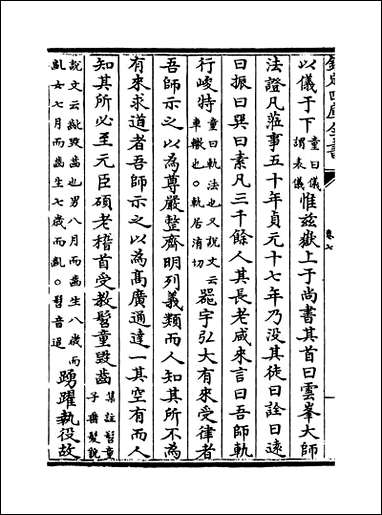 欽定四庫全書
卷七
以儀于下童曰儀謂表儀惟茲嶽上于尚書其首曰雲峯大師
法證凡蒞事五十年貞元十七年乃没其徒曰詮曰遠
曰振曰巽曰素凡三千餘人其長老咸來言曰吾師軌
行峻特童曰軌法也又說文云車轍也○軌居洧切器宇弘大有來受律者
吾師示之以為尊嚴整齊明列義類而人知其所不為
有來求道者吾師示之以為高廣通達一其空有而人
知其所必至元臣碩老稽首受教髫童毁齒集註髫童子垂髮說
說文云齔毁齒也男八月而齒生八歲而齔女七月而齒生七歲而齔○髫音迢踴躍執役故